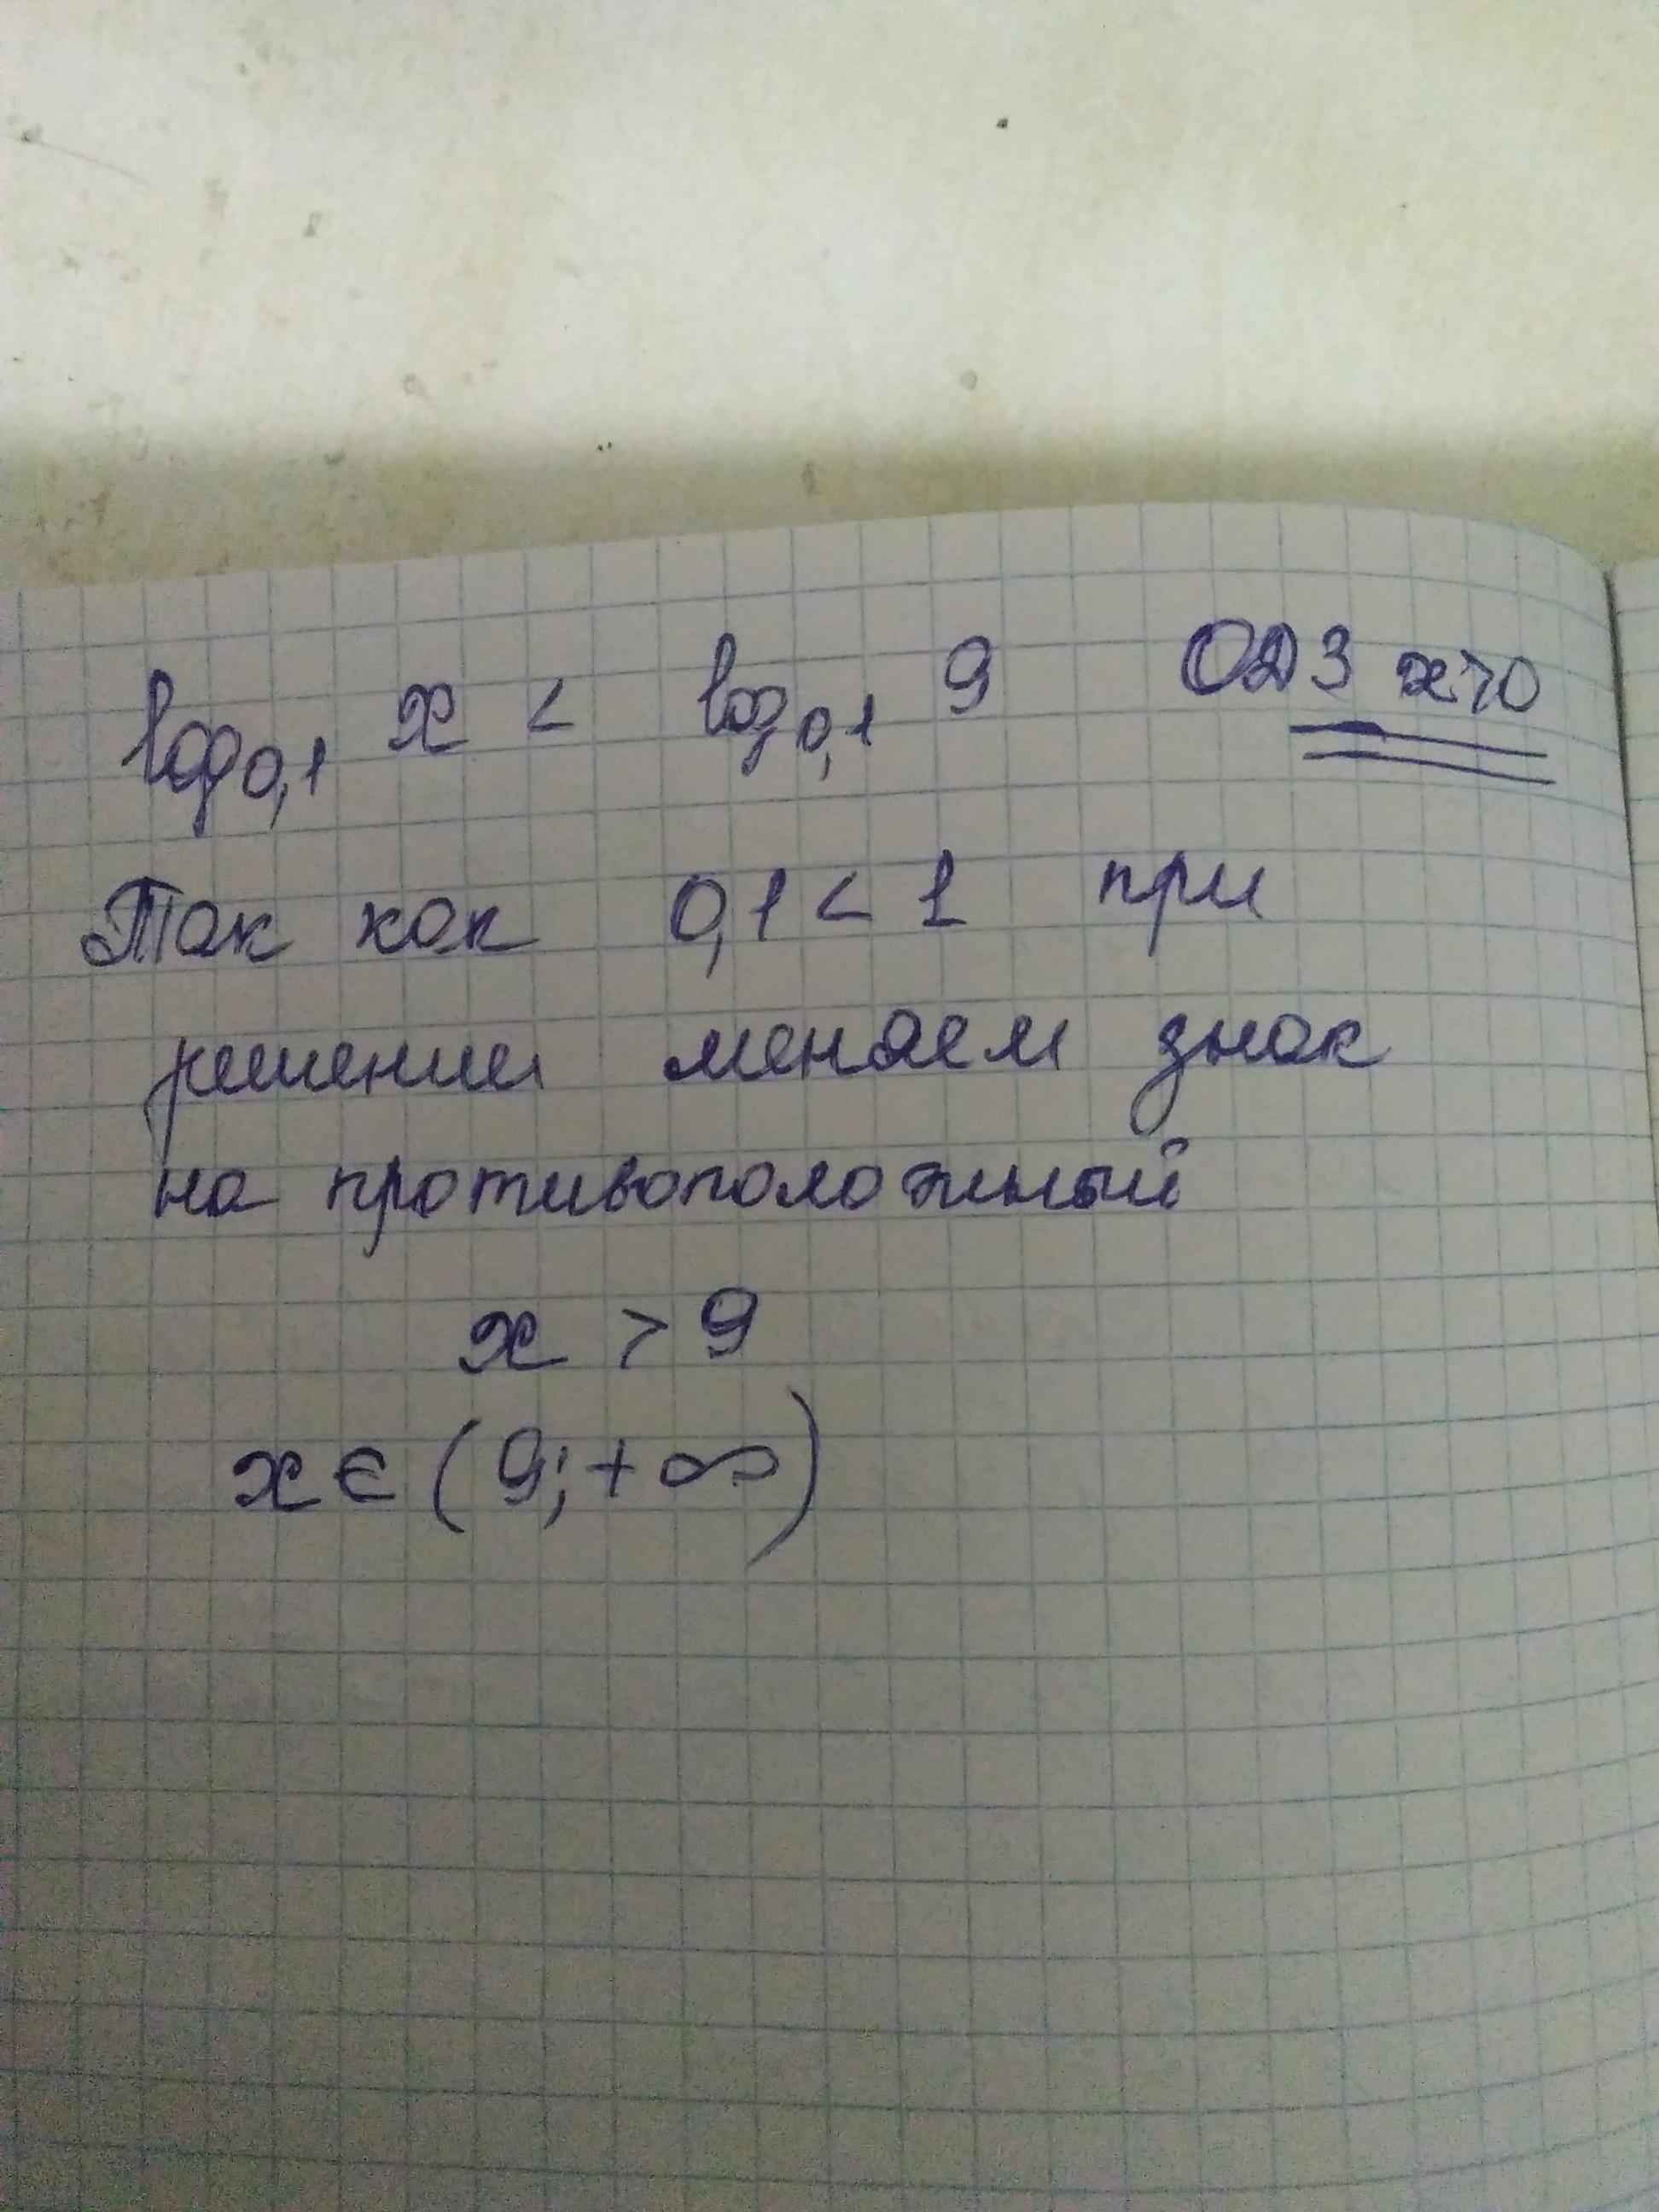 log₀,₁ x < log₀,₁ 9 ОДЗ x>0
Так как 0,1 < 1 при
решении меняем знак
на противоположный
x > 9
x ∈ (9; +∞)